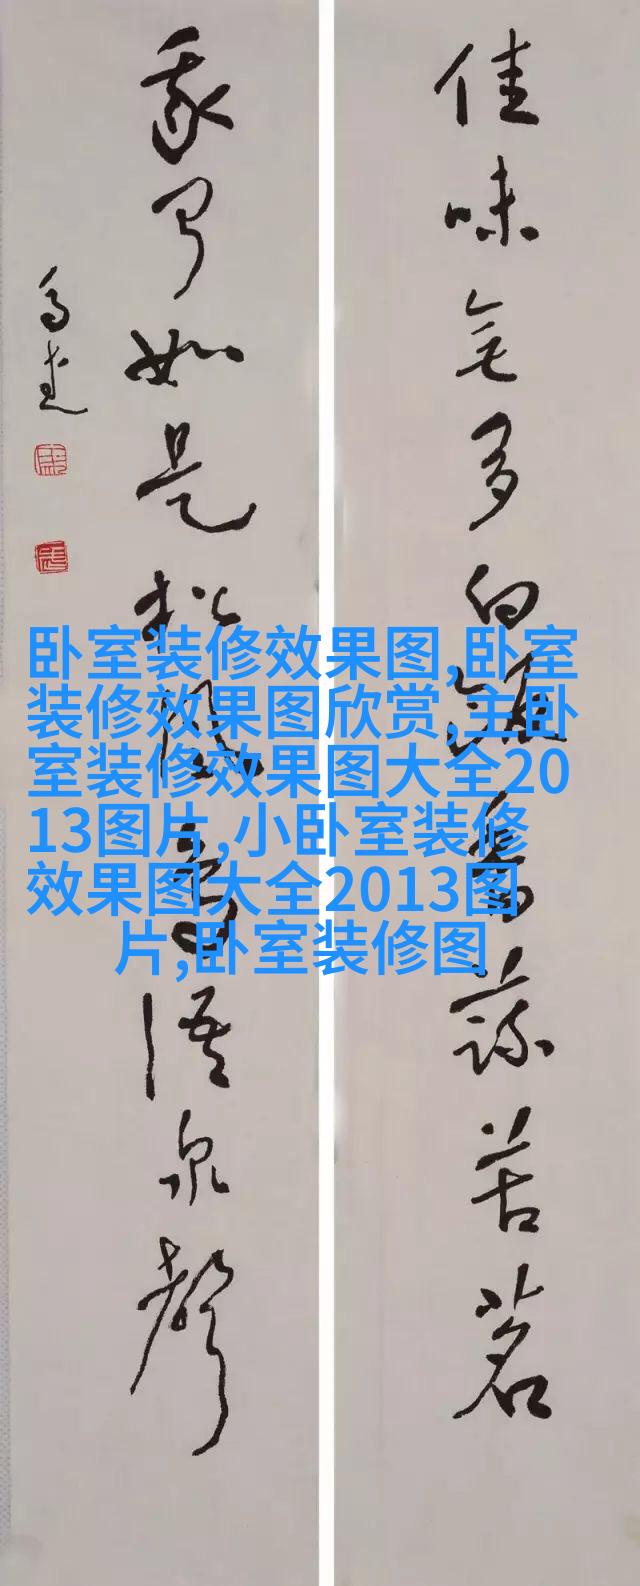 佳味無多白飯香蔬苦茗
我聞如是松風鳥語泉聲
卧室装修效果图,卧室
装修效果图欣赏,主卧
室装修效果图大全20
13图片,小卧室装修
效果图大全2013图
片,卧室装修图